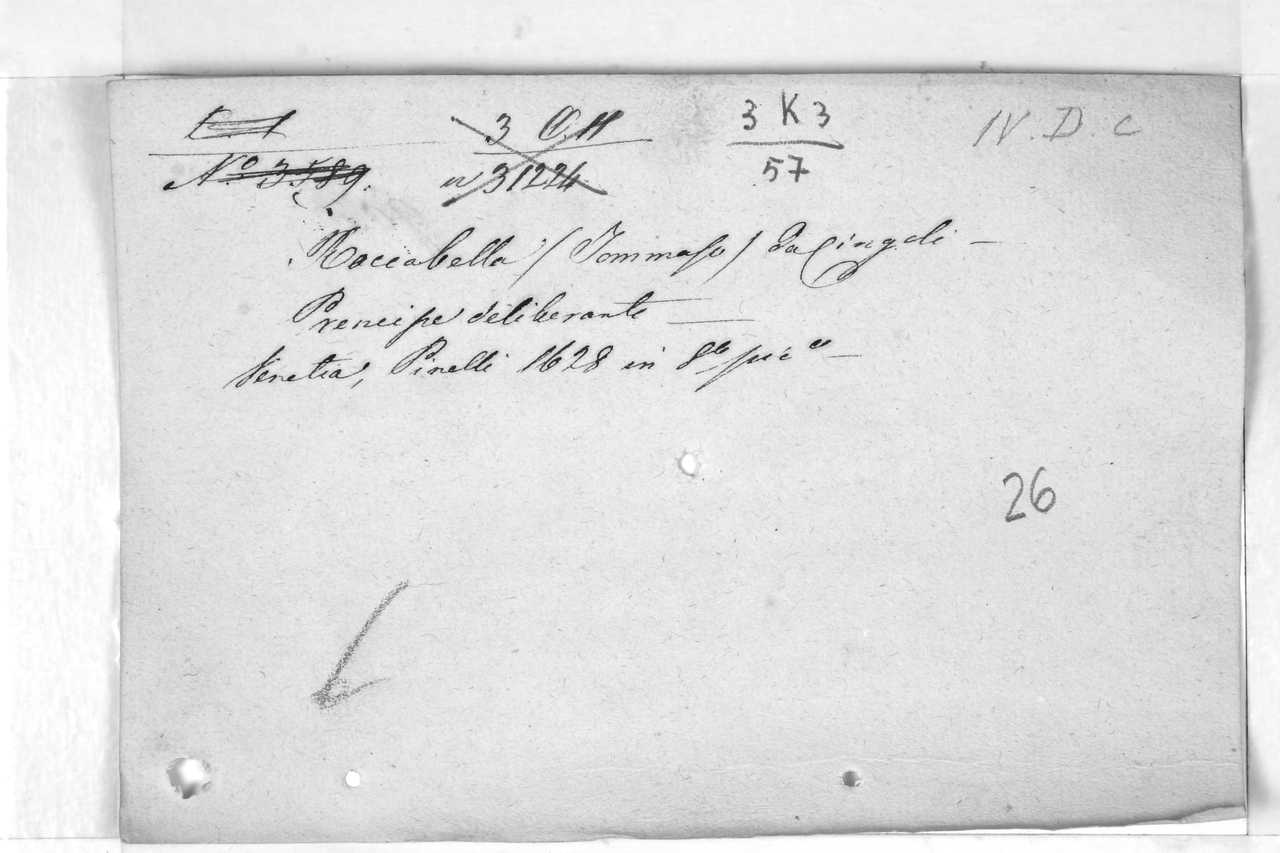 3 O. 11
3 K 3
IV. D. c
No. 3589.
n 31224
57
Roccabella (Tommaso) da Cingoli —
Prencipe deliberante —
Venetia, Pinelli 1628 in 8º picº —
26